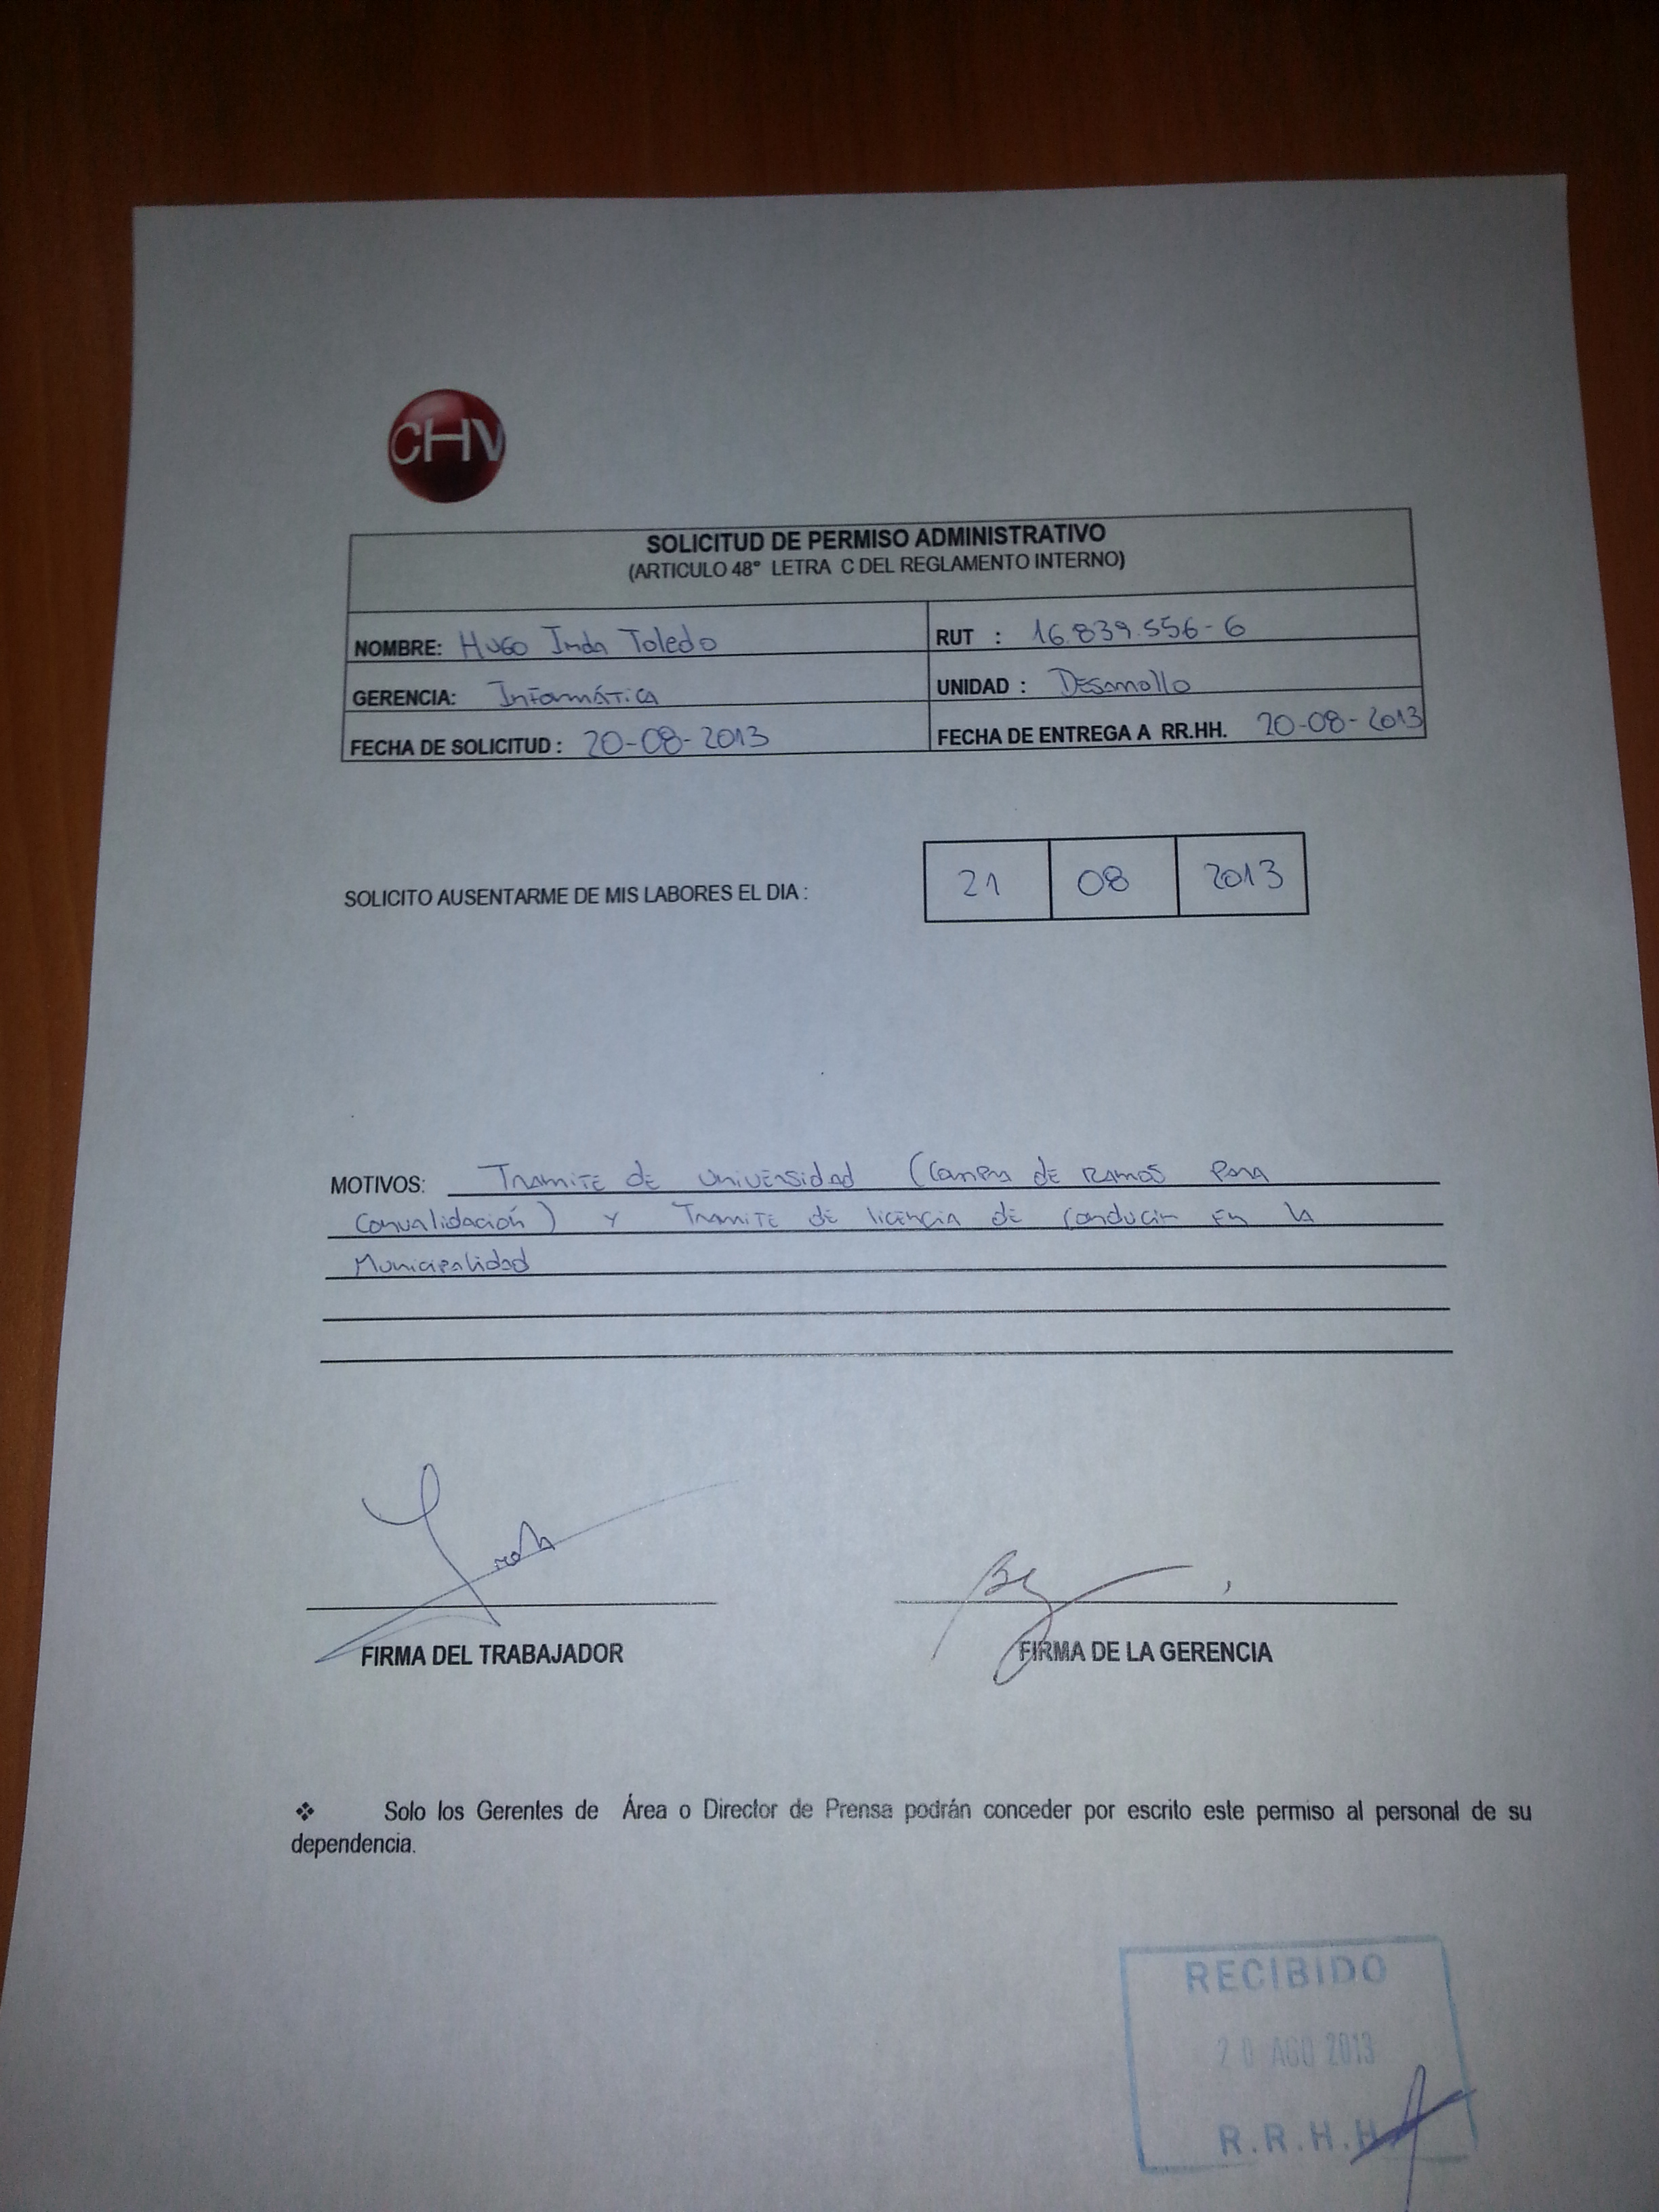 CHV
SOLICITUD DE PERMISO ADMINISTRATIVO
(ARTICULO 48° LETRA C DEL REGLAMENTO INTERNO)
NOMBRE: Hugo Inda Toledo
RUT : 16.839.556-6
GERENCIA: Informática
UNIDAD : Desarrollo
FECHA DE SOLICITUD : 20-08-2013
FECHA DE ENTREGA A RR.HH. 20-08-2013
SOLICITO AUSENTARME DE MIS LABORES EL DIA : 21 08 2013
MOTIVOS: Tramite de Universidad (Compra de Ramos para
Convalidación) y Tramite de licencia de conducir en la
Municipalidad
FIRMA DEL TRABAJADOR
FIRMA DE LA GERENCIA
❖ Solo los Gerentes de Área o Director de Prensa podrán conceder por escrito este permiso al personal de su
dependencia.
RECIBIDO
20 AGO 2013
R.R.H.H